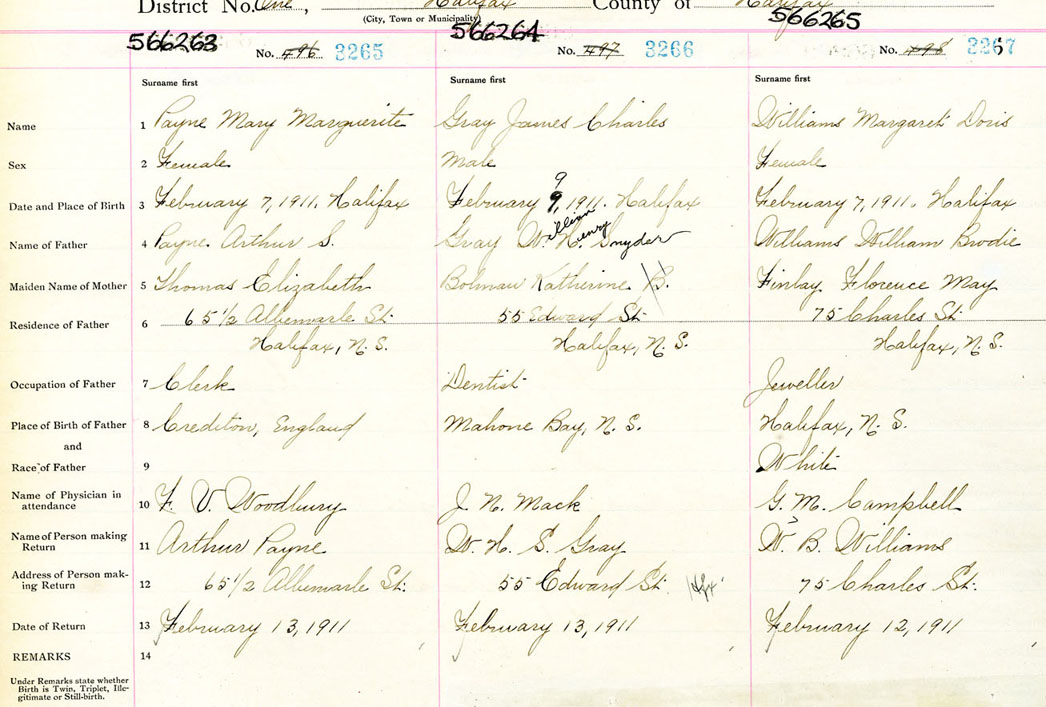 District No. One, Halifax County of Halifax
(City, Town or Municipality)
566263 566264 566265
No. 496 3265 No. 497 3266 No. 498 3267
Surname first Surname first Surname first
Name 1 Payne Mary Marguerite Gray James Charles Williams Margaret Doris
Sex 2 Female Male Female
9
Date and Place of Birth 3 February 7, 1911, Halifax February 9, 1911. Halifax February 7, 1911, Halifax
illiam
enry
Name of Father 4 Payne Arthur S. Gray W. H. Snyder Williams William Brodie
Maiden Name of Mother 5 Thomas Elizabeth Bolman Katherine B. Finlay, Florence May
Residence of Father 6 65 1/2 Albemarle St. 55 Edward St. 75 Charles St.
Halifax, N. S. Halifax, N. S. Halifax, N. S.
Occupation of Father 7 Clerk Dentist Jeweller
Place of Birth of Father 8 Crediton, England Mahone Bay, N. S. Halifax, N. S.
and
Race of Father 9 White
Name of Physician in
attendance 10 F. V. Woodbury J. N. Mack G. M. Campbell
Name of Person making
Return 11 Arthur Payne W. H. S. Gray W. B. Williams
Address of Person mak-
ing Return 12 65 1/2 Albemarle St. 55 Edward St. Hfx 75 Charles St.
Date of Return 13 February 13, 1911 February 13, 1911 February 12, 1911
REMARKS 14
Under Remarks state whether
Birth is Twin, Triplet, Ille-
gitimate or Still-birth.